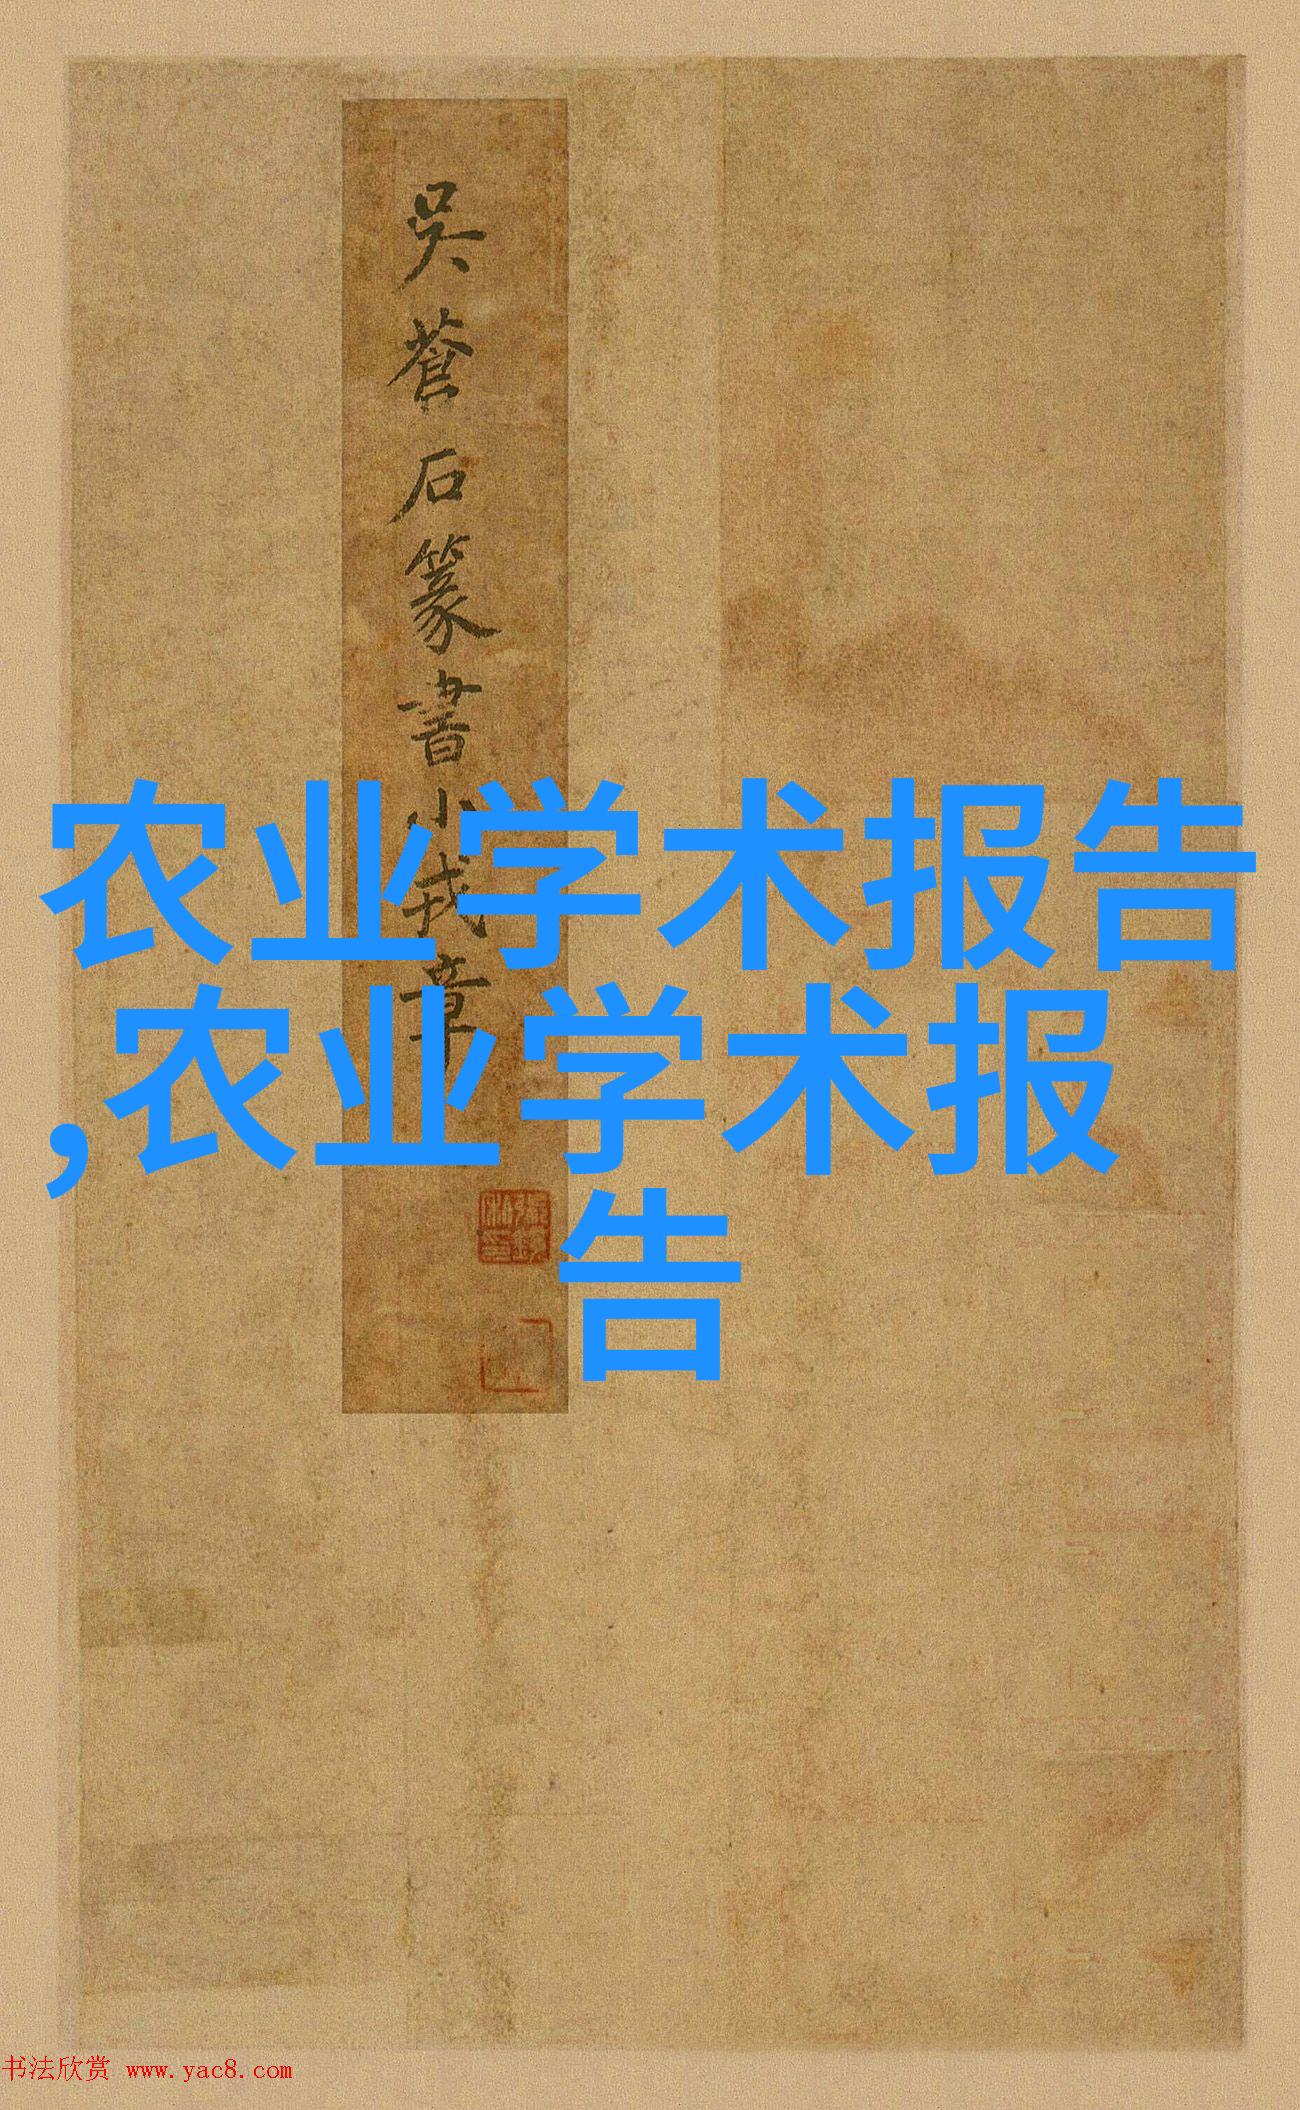 吳蒼石篆書小戎章
农业学术报告
,农业学术报
告
书法欣赏 www.yac8.com